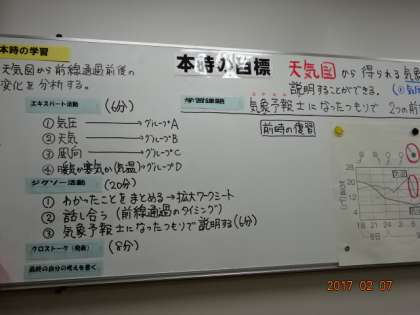 本時の学習
天気図から前線通過前後の
変化を分析する。
エキスパート活動 (6分)
①気圧 → グループA
②天気 → グループB
③風向 → グループC
④暖気か寒気か(気温) → グループD
ジグソー活動 (20分)
①わかったことをまとめる→拡大ワークシート
②話し合う (前線通過のタイミング)
③気象予報士になったつもりで説明する(6分)
クロストーク(発表) (8分)
最終の自分の考えを書く
本時の目標
天気図から得られる気象
説明することができる。
学習課題
気象予報士になったつもりで 2つの前
前時の復習
2017 02 07